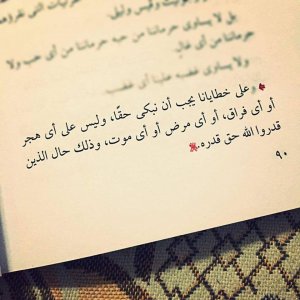 بل لا يساوى حرماننا من حبه حرماننا من أى حب ولا
حرماننا من أى غال.
ولا يساوى غضبه علينا أى غضب.
وعلى خطايانا يجب أن نبكى حقًا، وليس على أى هجر
أو أى فراق، أو أى مرض أو أى موت، وذلك حال الذين
قدروا الله حق قدره.
٩٠